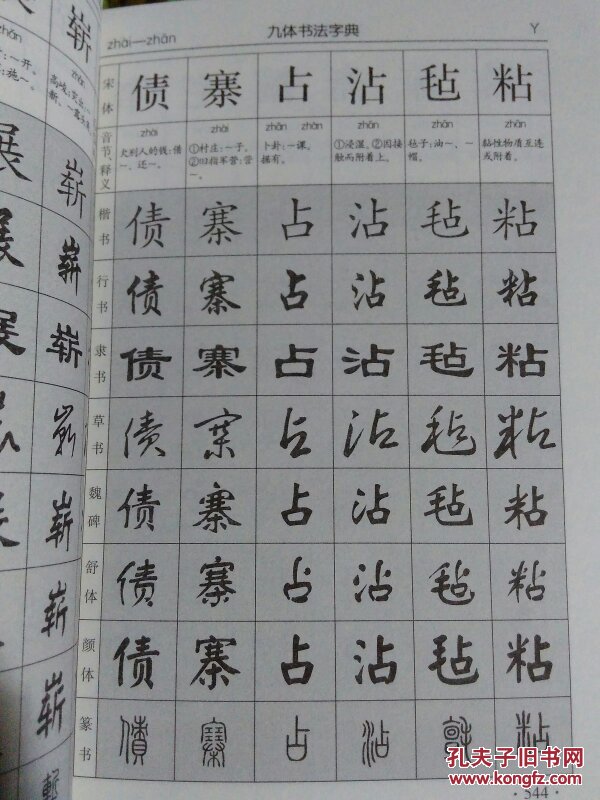 zhài—zhān
九体书法字典
Y
宋体
债 寨 占 沾 毡 粘
音节、释义
zhài
欠别人的钱:借~、还~。
zhài
①村庄:~子。②旧指军营:营~。
zhān zhàn
卜卦:~课。
据有。
zhān
①浸湿。②因接触而附着上。
zhān
毡子:油~、~帽。
zhān
黏性物质互连或附着。
楷书
债 寨 占 沾 毡 粘
行书
债 寨 占 沾 毡 粘
隶书
债 寨 占 沾 毡 粘
草书
债 寨 占 沾 毡 粘
魏碑
债 寨 占 沾 毡 粘
舒体
债 寨 占 沾 毡 粘
颜体
债 寨 占 沾 毡 粘
篆书
債 寨 占 沾 氈 粘
·544·
zhǎn
崭
展 崭
展 崭
展 崭
崭
展 崭
崭
崭
孔夫子旧书网
www.kongfz.com